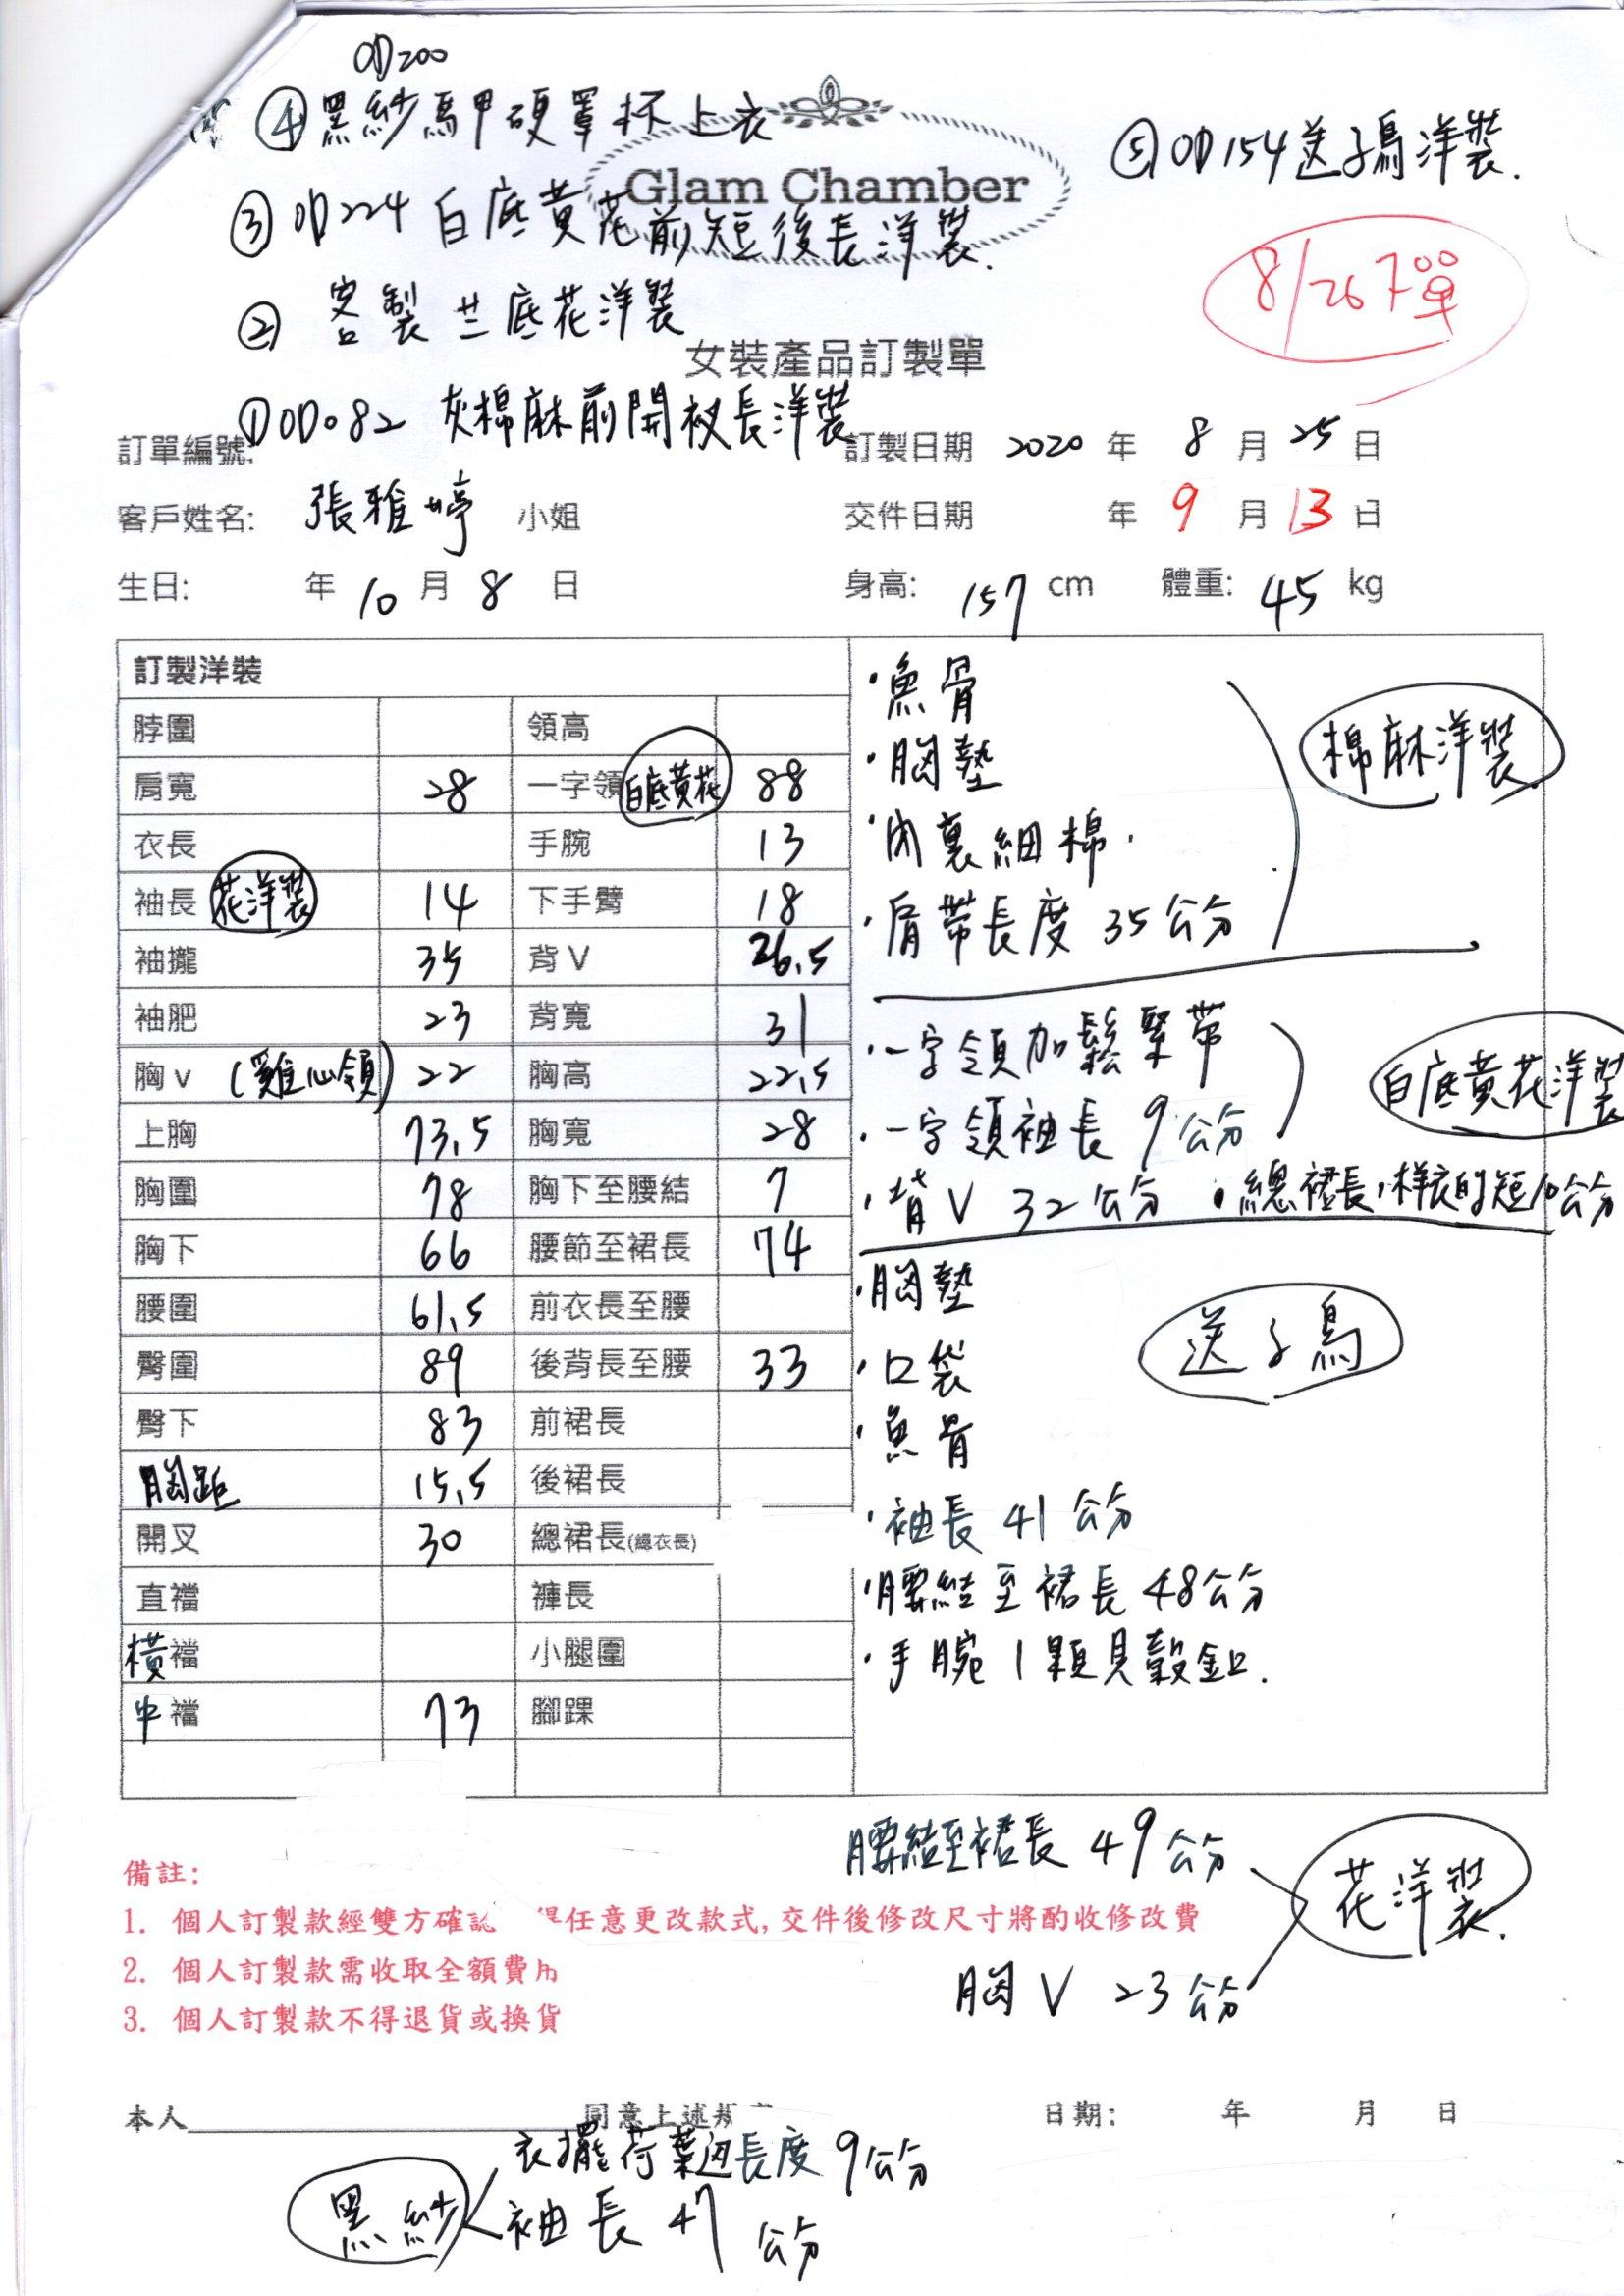 OD200
④黑紗馬甲硬罩杯上衣
⑤OD154送子鳥洋裝.
Glam Chamber
③OD224 白底黃花前短後長洋裝.
8/26下單
②客製 芒底花洋裝
女裝產品訂製單
①OD082 灰棉麻前開衩長洋裝
訂單編號: 訂製日期 2020 年 8 月 25 日
客戶姓名: 張雅婷 小姐 交件日期 年 9 月 13 日
生日: 年 10 月 8 日 身高: 157 cm 體重: 45 kg
訂製洋裝
脖圍 領高
肩寬 28 一字領 白底黃花 88
衣長 手腕 13
袖長 花洋裝 14 下手臂 18
袖攏 35 背V 36.5
袖肥 23 背寬 31
胸v (雞心領) 22 胸高 22.5
上胸 73.5 胸寬 28
胸圍 78 胸下至腰結 7
胸下 66 腰節至裙長 74
腰圍 61.5 前衣長至腰
臀圍 89 後背長至腰 33
臀下 83 前裙長
胸距 15.5 後裙長
開叉 30 總裙長(總衣長)
直襠 褲長
橫襠 小腿圍
中襠 73 腳踝
·魚骨
·胸墊
·內裏細棉.
·肩帶長度 35公分
棉麻洋裝
·一字領加鬆緊帶
·一字領袖長 9公分
·背V 32公分 ·總裙長,樣衣的短10公分
白底黃花洋裝
·胸墊
·口袋
·魚骨
·袖長 41 公分
·腰結至裙長 48公分
·手腕 1顆貝殼釦.
送子鳥
腰結至裙長 49 公分
胸V 23公分
花洋裝.
備註:
1. 個人訂製款經雙方確認 得任意更改款式,交件後修改尺寸將酌收修改費
2. 個人訂製款需收取全額費用
3. 個人訂製款不得退貨或換貨
本人 同意上述 日期: 年 月 日
黑紗
衣擺荷葉邊長度 9公分
袖長 47 公分